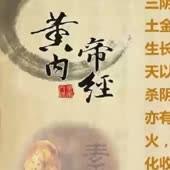 黄帝
内經
三阴
土金
生长
天以
杀阴
亦有
火，
化收